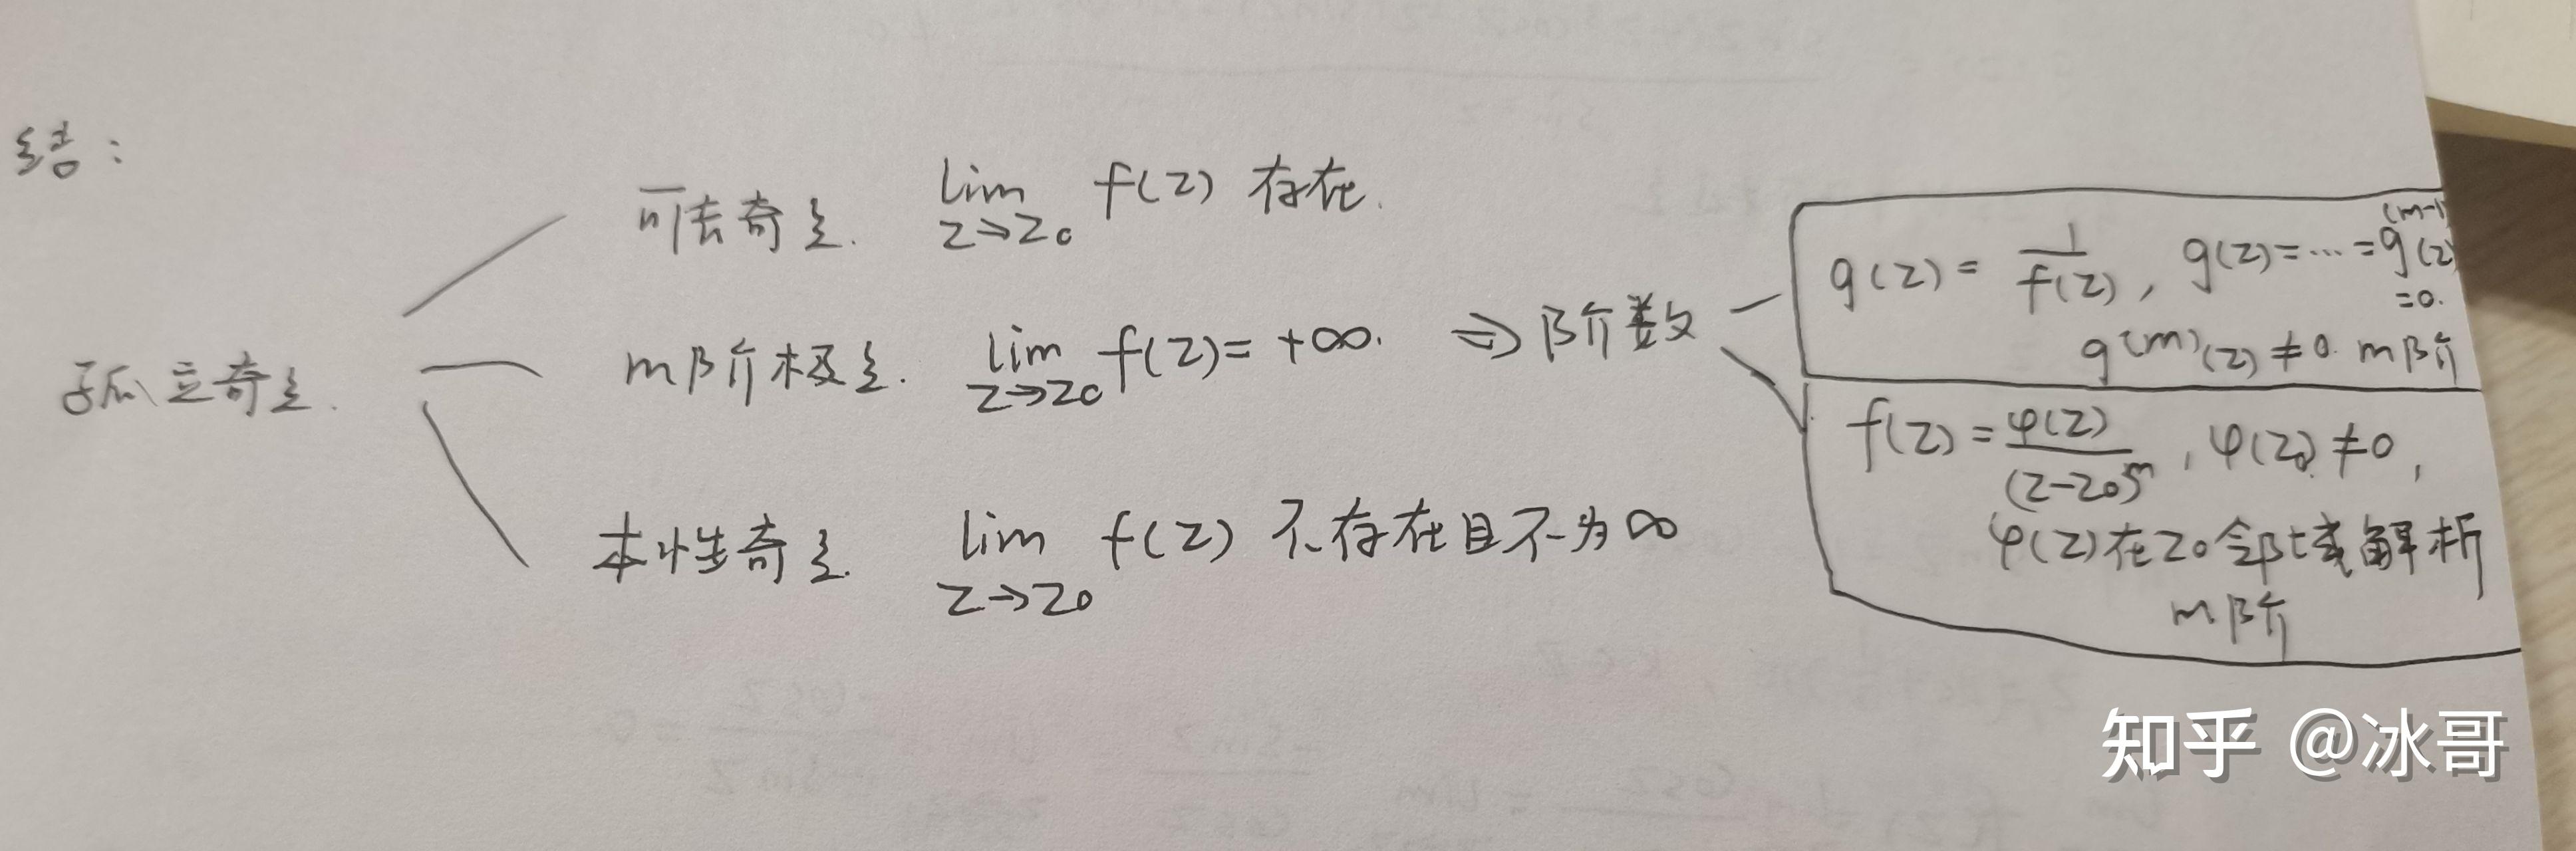 结：
孤立奇点.
可去奇点. lim z→z₀ f(z) 存在.
m阶极点. lim z→z₀ f(z) = +∞. ⇒ 阶数
本性奇点. lim z→z₀ f(z) 不存在且不为∞
g(z) = 1/f(z), g(z) = ⋯ = g^(m-1)(z) = 0.
g^(m)(z) ≠ 0. m阶
f(z) = φ(z)/(z-z₀)^m, φ(z₀) ≠ 0,
φ(z)在z₀邻域解析
m阶
知乎 @冰哥